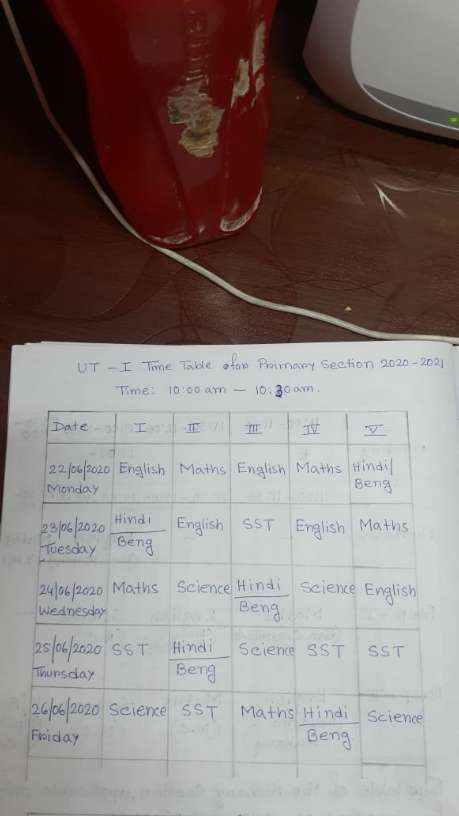 UT - I Time Table for Primary Section 2020-2021
Time: 10:00 am - 10:30 am.
Date I II III IV V
22/06/2020 Monday English Maths English Maths Hindi/Beng
23/06/2020 Tuesday Hindi/Beng English SST English Maths
24/06/2020 Wednesday Maths Science Hindi/Beng Science English
25/06/2020 Thursday SST Hindi/Beng Science SST SST
26/06/2020 Friday Science SST Maths Hindi/Beng Science